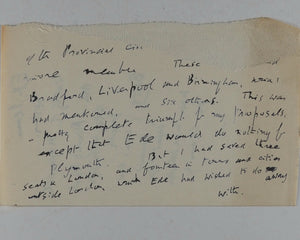 of the Provincial
more member These
Bradford, Liverpool and Birmingham,
had mentioned, and six others. This was
pretty complete triumph for my proposals,
except that Ede would do nothing for
Plymouth. But I had saved three
seats in London, and fourteen in towns and cities
outside London which Ede had wished to do away
with.